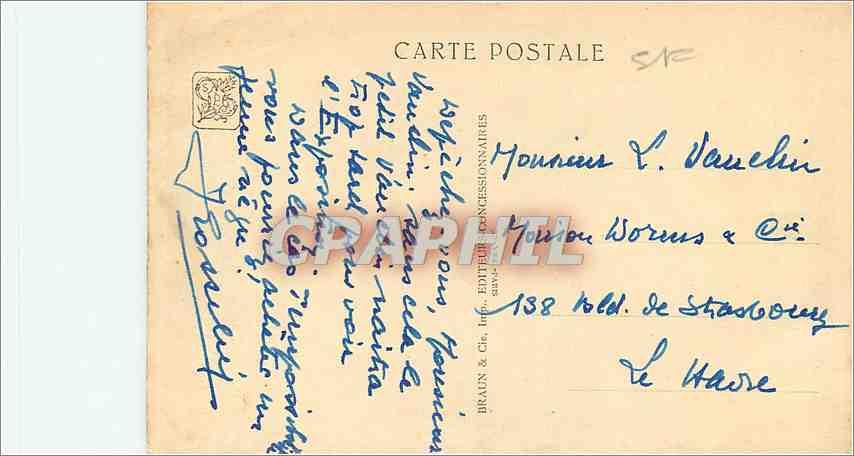 CARTE POSTALE
SK
Depêchez vous, Monsieur
Vauclin, sans cela le
petit Vauclin naitra
trop tard pour voir
l'Exposition.
Dans le cas d'impossibilité
vous pourrez acheter un
jeune nègre
BRAUN & Cie, Imp., EDITEURS-CONCESSIONNAIRES
Monsieur L. Vauclin
Maison Worms & Cie
138 Bld. de Strasbourg
Le Havre
CPAPHIL